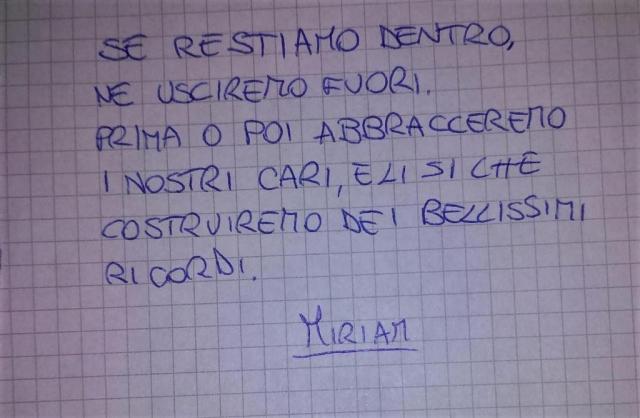 SE RESTIAMO DENTRO,
NE USCIREMO FUORI.
PRIMA O POI ABBRACCEREMO
I NOSTRI CARI, E LI SI CHE
COSTRUIREMO DEI BELLISSIMI
RICORDI.
MIRIAM